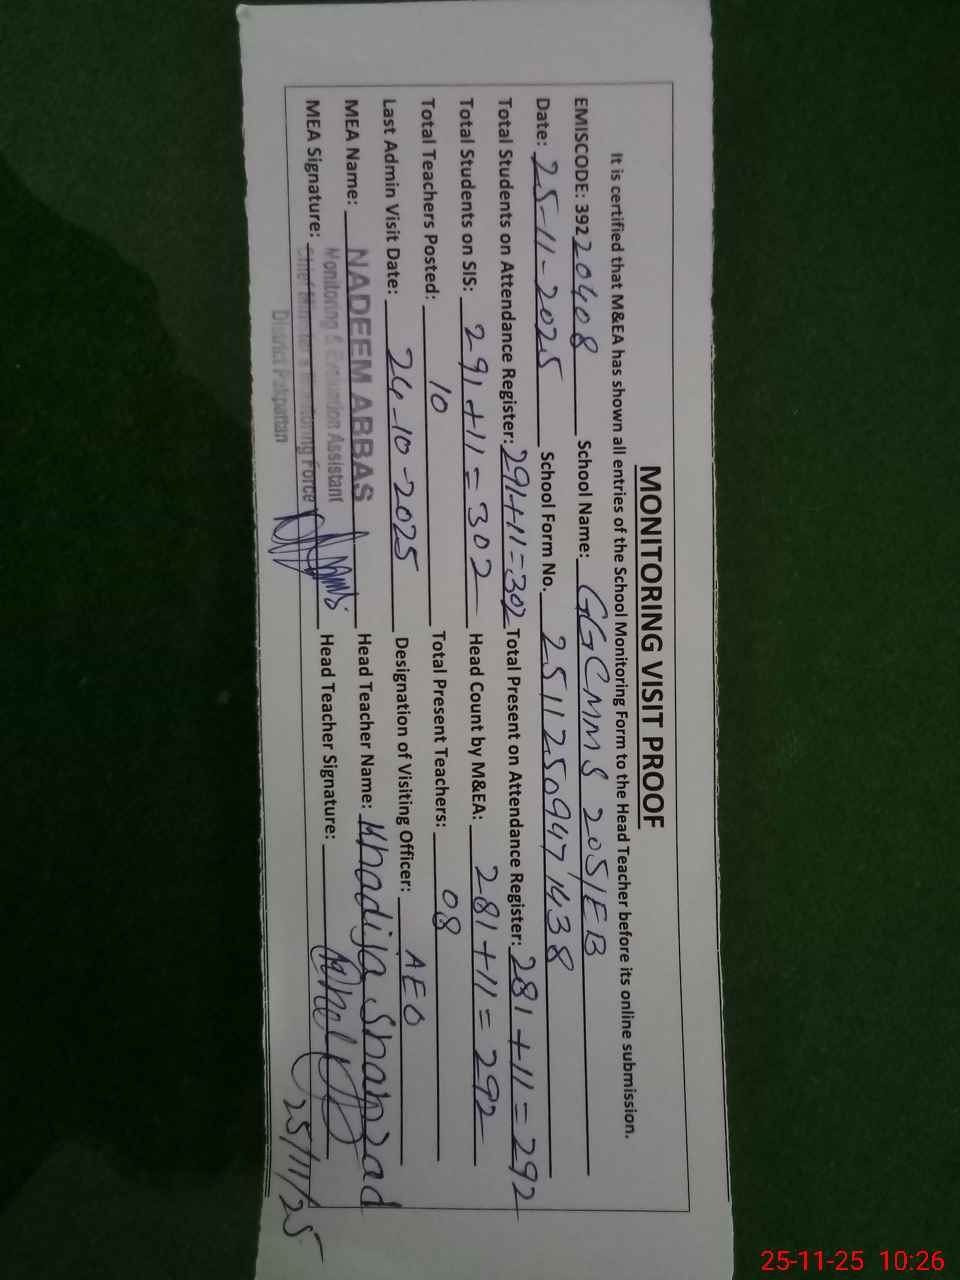 MONITORING VISIT PROOF
It is certified that M&EA has shown all entries of the School Monitoring Form to the Head Teacher before its online submission.
EMISCODE: 39220408 School Name: GGCMMS 205/EB
Date: 25-11-2025 School Form No. 25112509471438
Total Students on Attendance Register: 291+11=302 Total Present on Attendance Register: 281+11=292
Total Students on SIS: 291+11=302 Head Count by M&EA: 281+11=292
Total Teachers Posted: 10 Total Present Teachers: 08
Last Admin Visit Date: 24-10-2025 Designation of Visiting Officer: AEO
MEA Name: NADEEM ABBAS Head Teacher Name: Khadija Shahzad
Monitoring & Evaluation Assistant
MEA Signature: Chief Minister's Monitoring Force Head Teacher Signature:
District Pakpattan
25/11/25
25-11-25 10:26